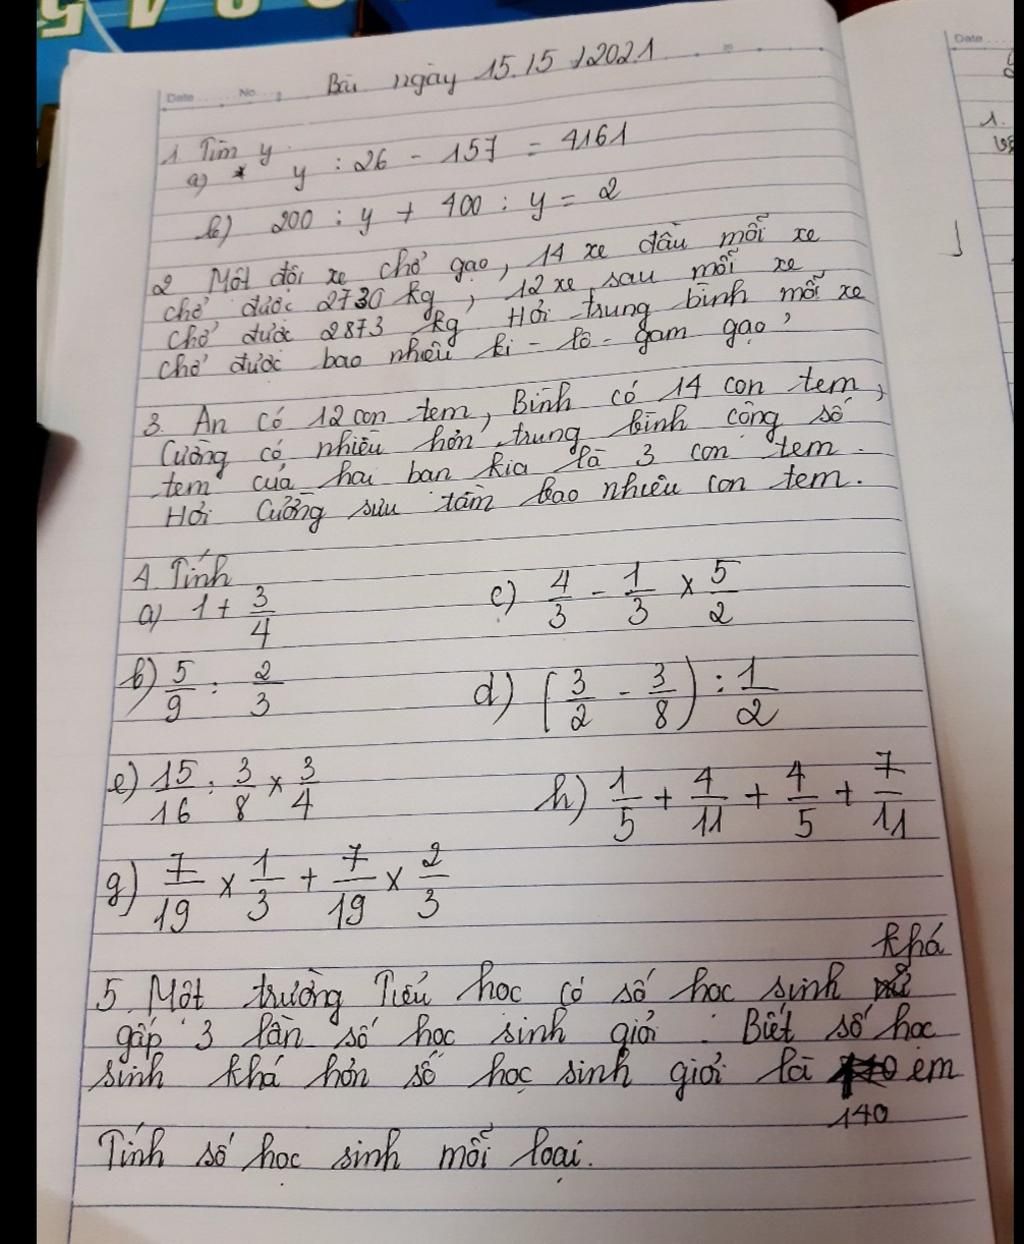 Date No.
Bài ngày 15.15.12021
1 Tìm y
a) * y : 26 - 157 = 4161
b) 200 : y + 400 : y = 2
2 Một đội xe chở gạo, 14 xe đầu mỗi xe
chở được 2730 kg, 12 xe sau mỗi xe
chở được 2873 kg Hỏi trung bình mỗi xe
chở được bao nhiêu ki-lô-gam gạo?
3. An có 12 con tem, Bình có 14 con tem,
Cường có nhiều hơn trung bình cộng số
tem của hai bạn kia là 3 con tem.
Hỏi Cường sưu tầm bao nhiêu con tem.
4. Tính
a) 1 + 3/4 c) 4/3 - 1/3 × 5/2
b) 5/9 : 2/3 d) (3/2 - 3/8) : 1/2
e) 15/16 : 3/8 × 3/4 h) 1/5 + 4/11 + 4/5 + 7/11
g) 7/19 × 1/3 + 7/19 × 2/3
khá
5 Một trường Tiểu học có số học sinh
gấp 3 lần số học sinh giỏi. Biết số học
sinh khá hơn số học sinh giỏi là em
140
Tính số học sinh mỗi loại.
Date
1.